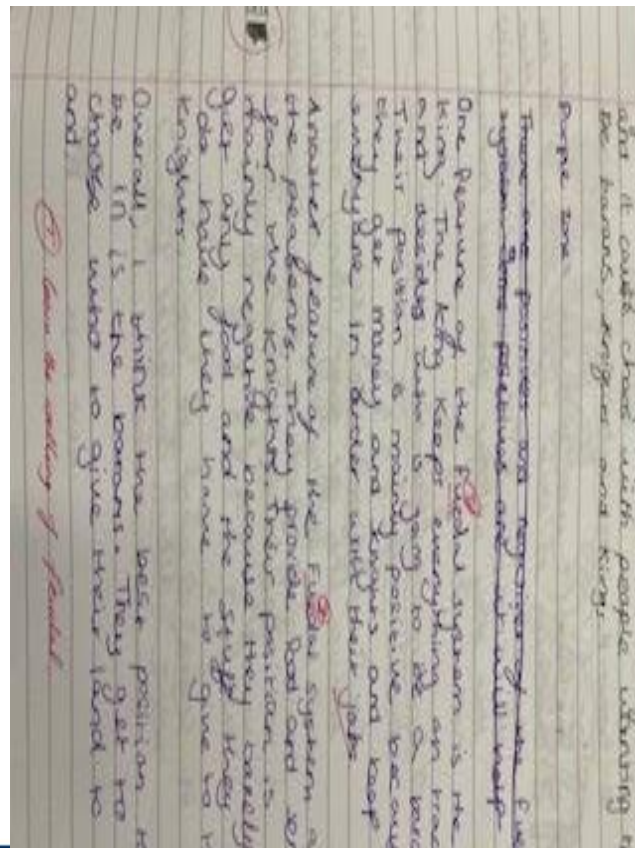 and it cause chaos with people wanting
be barons, knights and kings.
Purple zone
There are positives and negatives of the
system. Some positives are it will help
One feature of the Fuedal system is the
king. The king keeps everything on track
and decides who is going to be a
Their position is mainly positive
they get money and and keep
in order with their jobs.
Another feature of the Fuedal system
the peasents. They provide food and
for the knights. Their position is
mainly negative because they barely
get any food and the stuff they
do have they have to give to
knights.
Overall, I think the best position
be in is the barons. They get to
choose who to give their land to
and
Learn the spelling of feudal.